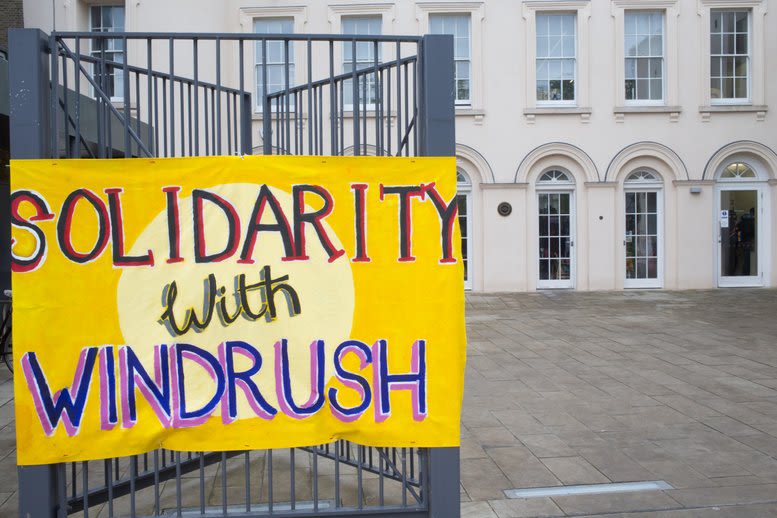 SOLIDARITY
With
WINDRUSH